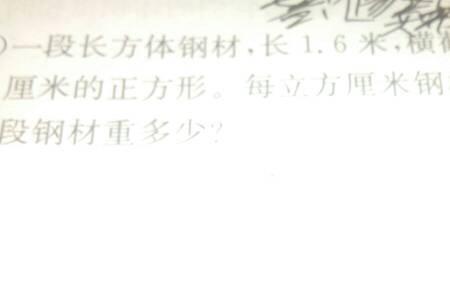 一段长方体钢材,长1.6米,横
厘米的正方形。每立方厘米钢
段钢材重多少?